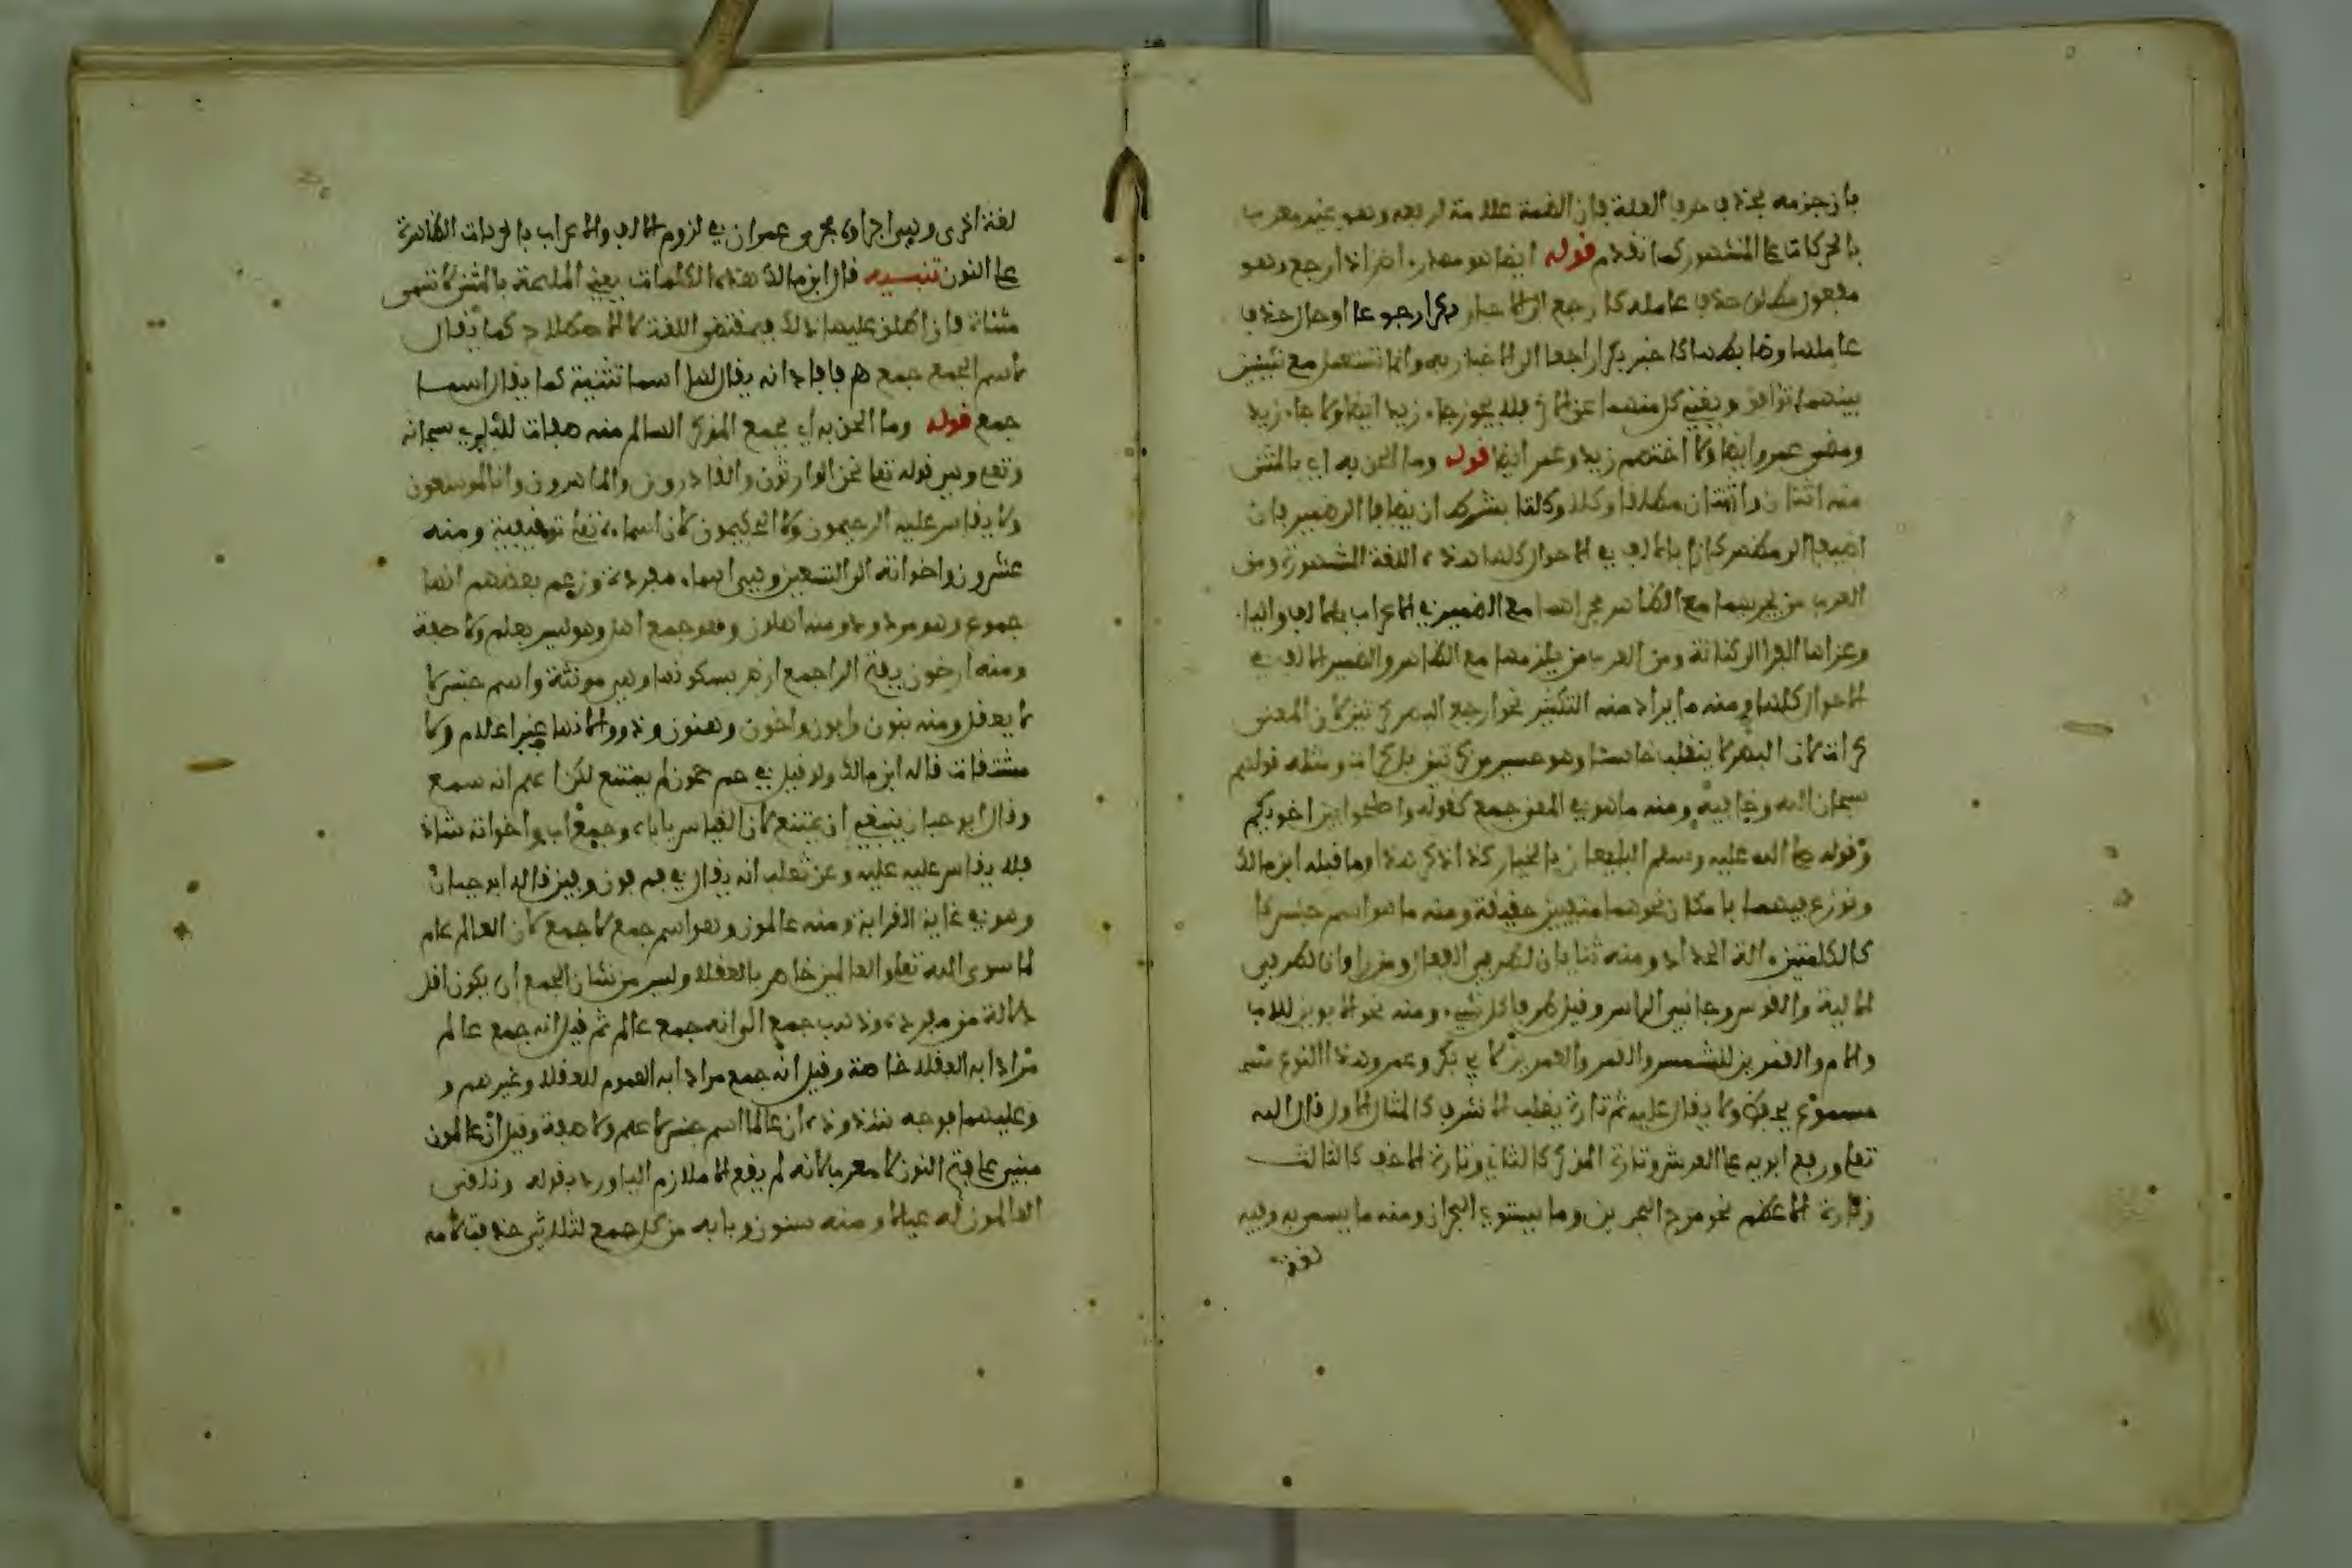 فإن جزمه بحذف حرف العلة فإن الضمة علامة لرفعه وهو غير معرب
بالحركات على المشهور كما تقدم قوله ايضا هو مصدر اض اذا رجع وهو
مفعول مطلق حذف عامله كا رجع الى الاخبار رجوعا او حال حذف
عاملها وصاحبها كا خبر راجعا الى الاخبار به وانما تستعمل مع شيئين
بينهما توافق ويغني كل منهما عن الاخر فلا يجوز جاء زيد ايضا ولا جاء زيد
ومضى عمرو ايضا ولا اختصم زيد وعمر ايضا قوله وما الحق به اي بالمثنى
منه اثنان واثنتان مطلقا وكلا وكلتا بشرط ان يضافا الى ضمير فان
اضيفا الى مظهر كانا بالالف في الاحوال كلها هذه اللغة المشهورة ومن
العرب من يجريهما مع الظاهر مجراهما مع الضمير في الاعراب بالالف والياء
وعزاها الفرا الى كنانة ومن العرب من يلزمهما مع الظاهر والضمير الالف في
الاحوال كلها ومنه ما يراد منه التكثير نحو ارجع البصر كرتين لان المعنى
كرات لان البصر لا ينقلب خاسئا وهو حسير من كرتين بل كرات ومثله قولهم
سبحان الله وحنانيه ومنه ما هو في المعنى جمع كقوله واصلحوا بين اخويكم
وقوله صلى الله عليه وسلم البيعان بالخيار كذا ذكر هذا وما قبله ابن مالك
ونوزع فيهما بامكان نحوهما مثنيين حقيقة ومنه ما هو اسم جنس كا
كالكلبتين الة الحداد ومنه ثنايان لطرفي العقال ومذروان لطرفي
الالية والقوس وجانبي الراس وقيل طرفا كل شيء ومنه نحو الابوين للاب
والام والقمرين للشمس والقمر والعمرين لابي بكر وعمر وهذا النوع
مسموع يحفظ ولا يقاس عليه ثم تارة يغلب الاشرف كالمثال الاول قال الله
تعلى ورفع ابويه على العرش وتارة المذكر كالثاني وتارة الاخف كالثالث
وتارة الاعظم نحو مرج البحرين وما يستوي البحران ومنه ما يسمى به وفيه
لغة
لغة اخرى وهي اجراوه مجرى عمران في لزوم الالف والاعراب بالحركات الظاهرة
على النون تنبيه قال ابن مالك هذه الكلمات يعني الملحقة بالمثنى لا تسمى
مثناة فان اطلق عليها ذلك فبمقتضى اللغة لا الاصطلاح كما يقال
لاسم الجمع جمع يقال لها اسما تثنية كما يقال اسما
جمع قوله وما الحق به اي بجمع المذكر السالم منه صفات للباري سبحانه
وتعلى وهي قوله تعلى نحن الوارثون والقادرون والماهدون وانا لموسعون
ولا يقاس عليه الرحيمون ولا الحكيمون لان اسماءه تعلى توقيفية ومنه
عشرون واخواته الى التسعين وهي اسماء مفردة وزعم بعضهم انها
جموع وهو مردود ومنه اهلون وهو جمع اهل وهو ليس بعلم ولا صفة
ومنه ارضون بفتح الرا جمع ارض بسكونها وهي مونثة واسم جنس لما
لا يعقل ومنه بنون وابون واخون وهنون وذوو لانها غير اعلام ولا
مشتقات قاله ابن مالك ولو قيل في حم حمون لم يمتنع لكن لا اعلم انه سمع
وقال ابو حيان ينبغي ان يمتنع لان القياس ياباه وجمع اب واخواته شاذ
فلا يقاس عليه عليه وعن ثعلب انه يقال في فم فون وفين قال ابو حيان
وهو في غاية الغرابة ومنه عالمون وهو اسم جمع لا جمع لان العالم عام
لما سوى الله تعلى والعالمين خاص بالعقلا وليس من شان الجمع ان يكون اقل
دلالة من مفرده وذهب جمع الى انه جمع عالم ثم قيل انه جمع عالم
مرادا به العقلا خاصة وقيل انه جمع مرادا به العموم للعقلا وغيرهم و
وعليهما فوجه شذوذه ان عالما اسم جنس لا علم ولا صفة وقيل ان عالمون
مبني على فتح النون لا معرب لانه لم يقع الا ملازم اليا ورد بقوله
العالمون له عيالا ومنه سنون وبابه من كل جمع لثلاثي حذفت لامه